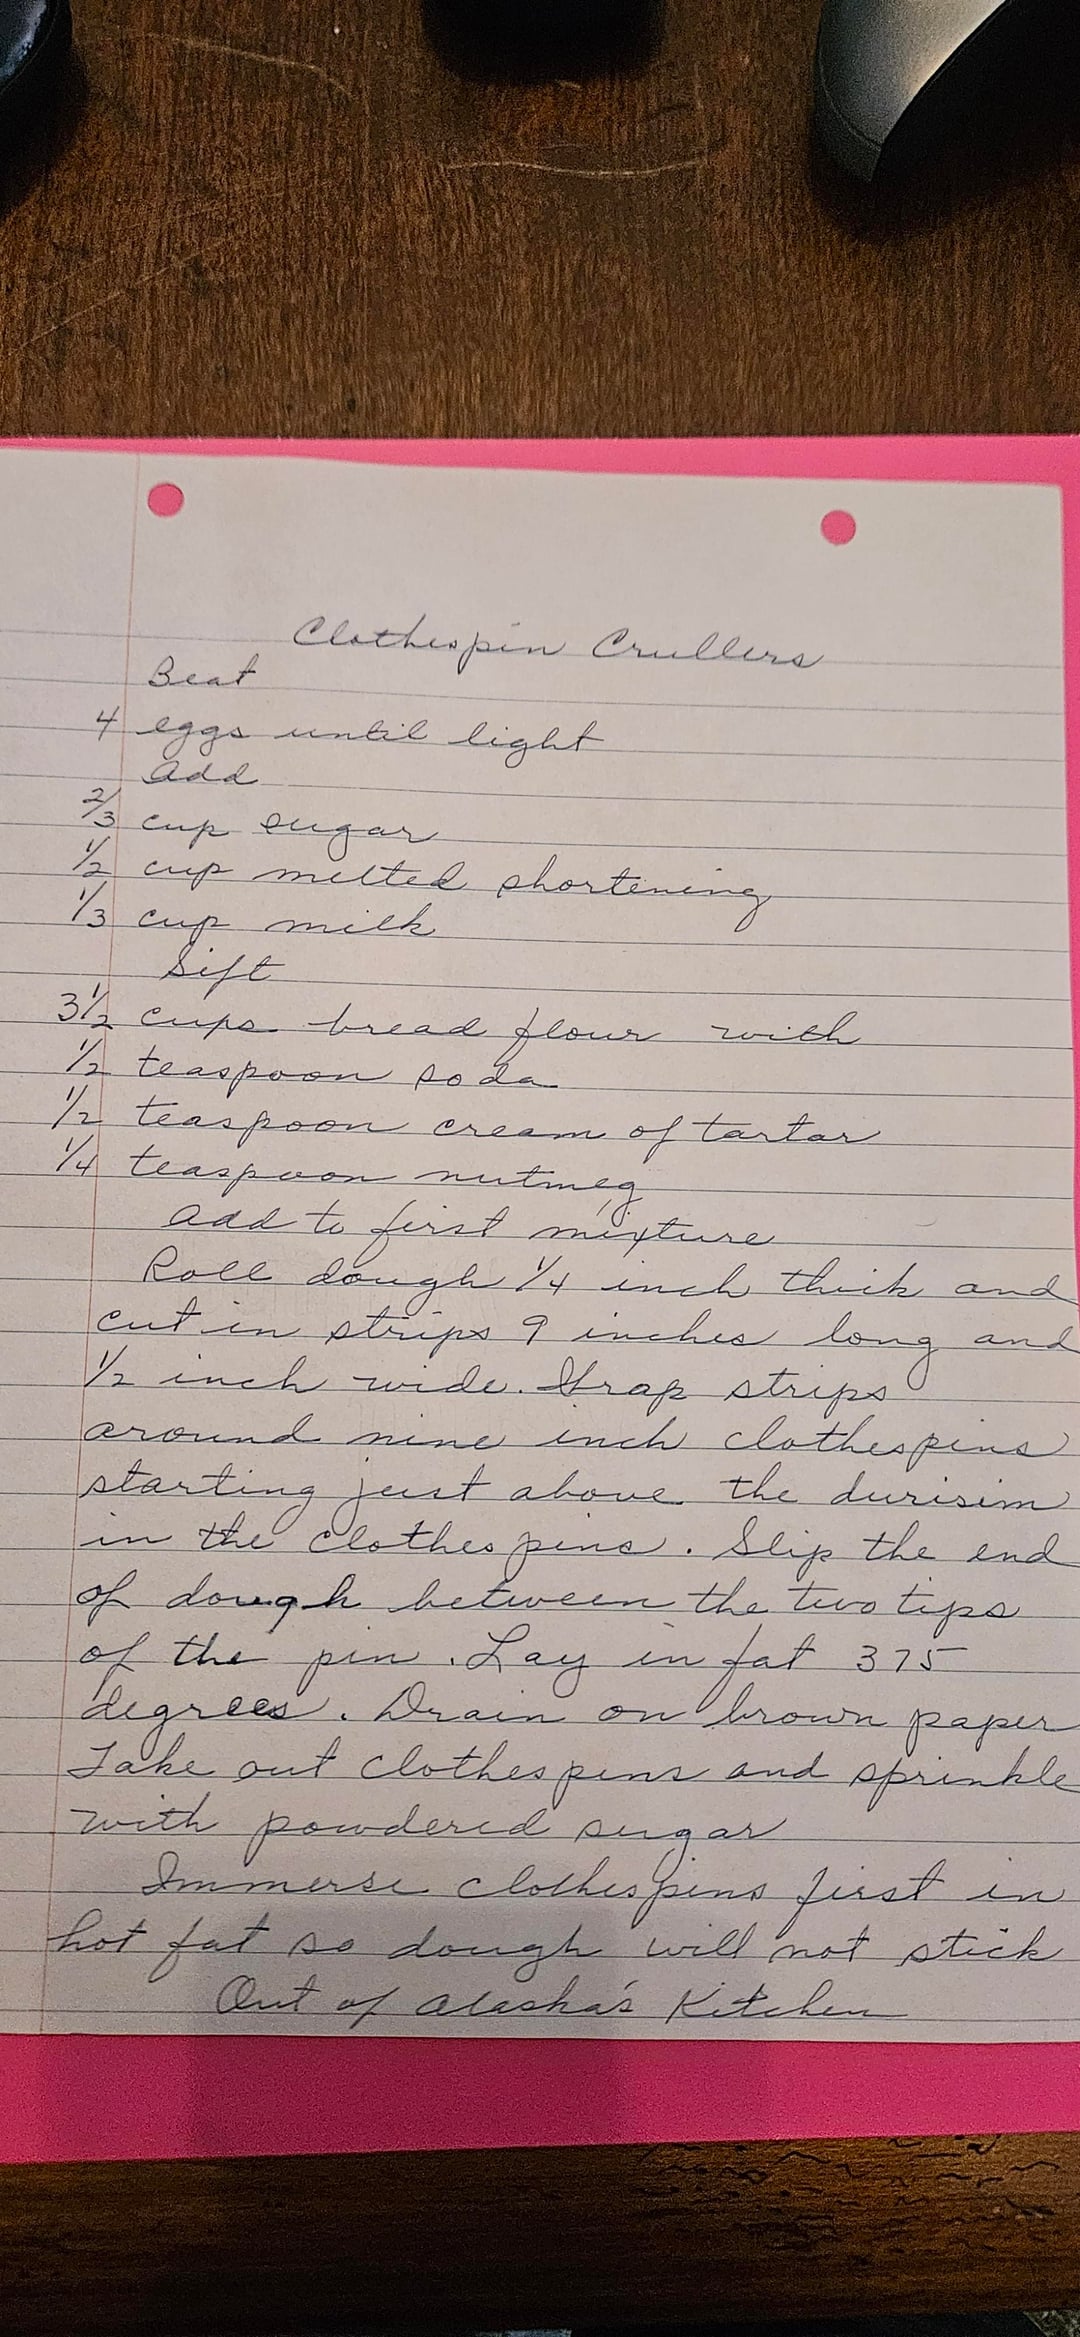 Clothespin Crullers
Beat
4 eggs until light
Add
2/3 cup sugar
1/2 cup melted shortening
1/3 cup milk
Sift
3 1/2 cups bread flour with
1/2 teaspoon soda
1/2 teaspoon cream of tartar
1/4 teaspoon nutmeg
Add to first mixture
Roll dough 1/4 inch thick and
cut in strips 9 inches long and
1/2 inch wide. Wrap strips
around nine inch clothespins
starting just above the durisim
in the clothespins. Slip the end
of dough between the two tips
of the pin. Lay in fat 375
degrees. Drain on brown paper
Take out clothespins and sprinkle
with powdered sugar
Immerse clothespins first in
hot fat so dough will not stick
Out of Alaska's Kitchen